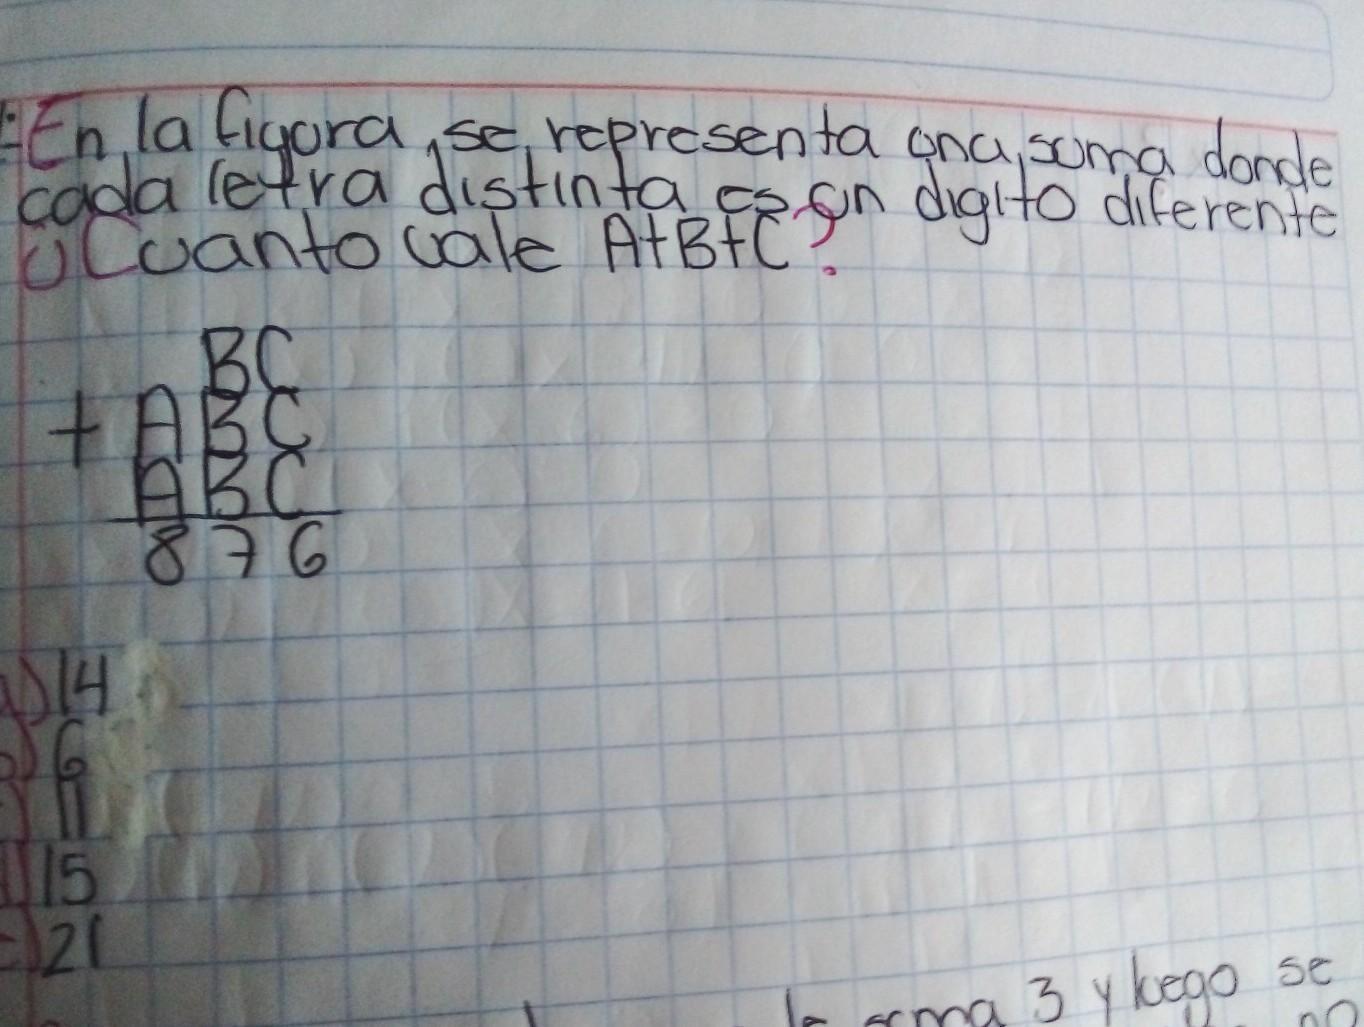 En la figura, se representa una suma donde
cada letra distinta es un digito diferente
¿Cuanto vale A+B+C?
BC
+ ABC
ABC
876
a) 14
b) 6
c) 11
d) 15
e) 21
la suma 3 y luego se
no